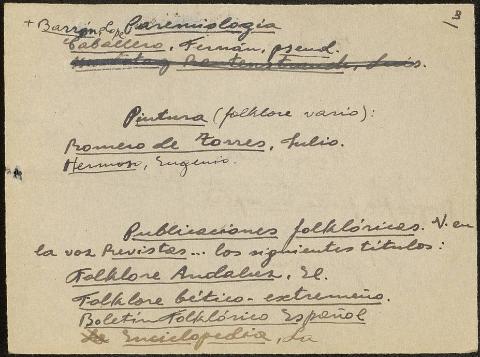 + Barrón, Lope Paremiología
Caballero, Fernán, pseud.
Luis.
Pintura (folklore vario):
Romero de Torres, Julio.
Hermoso, Eugenio.
Publicaciones folklóricas. V. en
la voz Revistas... los siguientes títulos:
Folklore Andaluz, El.
Folklore bético-extremeño.
Boletín Folklórico Español
Enciclopedia, La